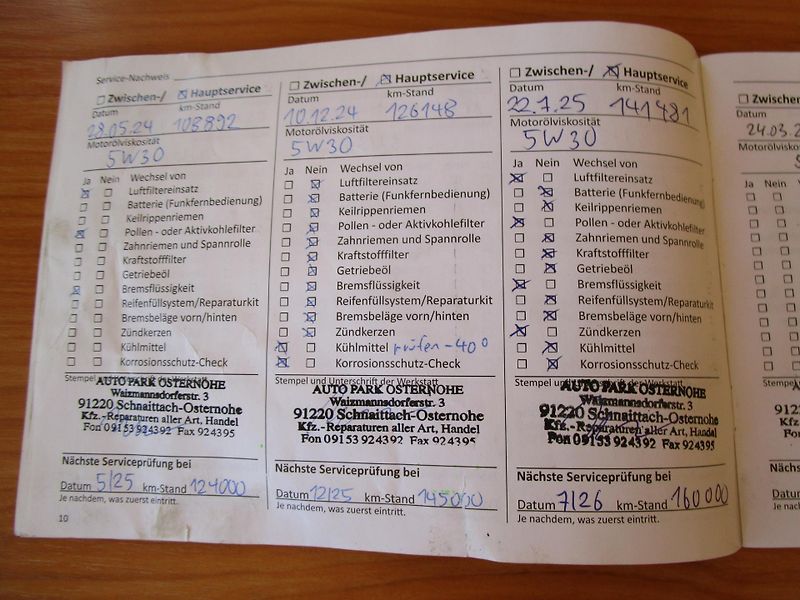 Service-Nachweis
☐ Zwischen-/ ☒ Hauptservice
Datum km-Stand
28.05.24 108892
Motorölviskosität
5W30
Ja Nein Wechsel von
☒ ☐ Luftfiltereinsatz
☐ ☐ Batterie (Funkfernbedienung)
☐ ☐ Keilrippenriemen
☒ ☐ Pollen - oder Aktivkohlefilter
☐ ☐ Zahnriemen und Spannrolle
☐ ☐ Kraftstofffilter
☐ ☐ Getriebeöl
☒ ☐ Bremsflüssigkeit
☐ ☐ Reifenfüllsystem/Reparaturkit
☐ ☐ Bremsbeläge vorn/hinten
☐ ☐ Zündkerzen
☐ ☐ Kühlmittel
☐ ☐ Korrosionsschutz-Check
Stempel
AUTO PARK OSTERNOHE
Waizmannsdorferstr. 3
91220 Schnaittach-Osternohe
Kfz.-Reparaturen aller Art, Handel
Fon 09153 924392 Fax 924395
Nächste Serviceprüfung bei
Datum 5/25 km-Stand 124000
Je nachdem, was zuerst eintritt.
10
☐ Zwischen-/ ☒ Hauptservice
Datum km-Stand
10.12.24 126148
Motorölviskosität
5W30
Ja Nein Wechsel von
☐ ☒ Luftfiltereinsatz
☐ ☒ Batterie (Funkfernbedienung)
☐ ☒ Keilrippenriemen
☐ ☒ Pollen - oder Aktivkohlefilter
☐ ☒ Zahnriemen und Spannrolle
☐ ☒ Kraftstofffilter
☐ ☒ Getriebeöl
☐ ☒ Bremsflüssigkeit
☐ ☒ Reifenfüllsystem/Reparaturkit
☐ ☒ Bremsbeläge vorn/hinten
☐ ☒ Zündkerzen
☒ ☐ Kühlmittel prüfen -40°
☒ ☐ Korrosionsschutz-Check
Stempel und Unterschrift der Werkstatt
AUTO PARK OSTERNOHE
Waizmannsdorferstr. 3
91220 Schnaittach-Osternohe
Kfz.-Reparaturen aller Art, Handel
Fon 09153 924392 Fax 924395
Nächste Serviceprüfung bei
Datum 12/25 km-Stand 145000
Je nachdem, was zuerst eintritt.
☐ Zwischen-/ ☒ Hauptservice
Datum km-Stand
22.7.25 141481
Motorölviskosität
5W30
Ja Nein Wechsel von
☒ ☐ Luftfiltereinsatz
☐ ☒ Batterie (Funkfernbedienung)
☐ ☒ Keilrippenriemen
☒ ☐ Pollen - oder Aktivkohlefilter
☐ ☒ Zahnriemen und Spannrolle
☐ ☒ Kraftstofffilter
☐ ☒ Getriebeöl
☒ ☐ Bremsflüssigkeit
☐ ☒ Reifenfüllsystem/Reparaturkit
☐ ☒ Bremsbeläge vorn/hinten
☒ ☐ Zündkerzen
☐ ☒ Kühlmittel
☐ ☒ Korrosionsschutz-Check
Stempel und der Werkstatt
AUTO PARK OSTERNOHE
Waizmannsdorferstr. 3
91220 Schnaittach-Osternohe
Kfz.-Reparaturen aller Art, Handel
Fon 09153 924392 Fax 924395
Nächste Serviceprüfung bei
Datum 7/26 km-Stand 160000
Je nachdem, was zuerst eintritt.
☐ Zwischen
Datum
24.03.2
Motorölviskos
Ja Nein W
Stempel un
AUT
W
91220
Kfz.-Re
Fon 0
Nächste S
Datum
Je nachdem